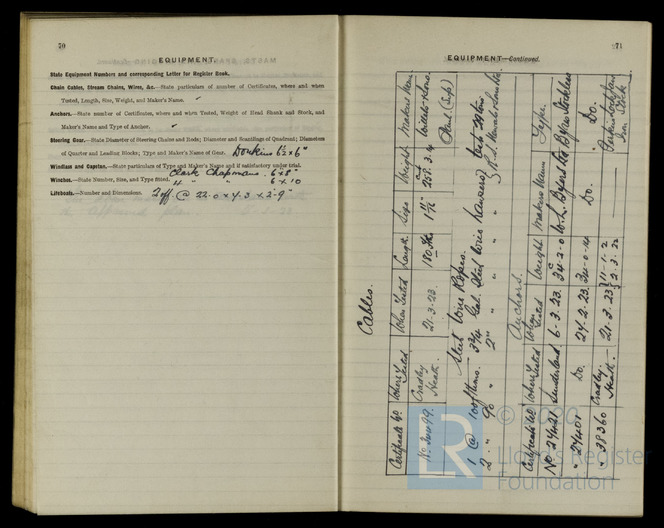 70
EQUIPMENT.
State Equipment Numbers and corresponding Letter for Register Book.
Chain Cables, Stream Chains, Wires, &c.—State particulars of number of Certificates, where and when
Tested, Length, Size, Weight, and Maker's Name.
Anchors.—State number of Certificates, where and when Tested, Weight of Head Shank and Stock, and
Maker's Name and Type of Anchor.
Steering Gear.—State Diameter of Steering Chains and Rods; Diameter and Scantlings of Quadrant; Diameters
of Quarter and Leading Blocks; Type and Maker's Name of Gear. Donkins 6½ x 6"
Windlass and Capstan.—State particulars of Type and Maker's Name and if satisfactory under trial.
Winches.—State Number, Size, and Type fitted. Clark Chapmans. 6 x 8"
4 " " 6 x 10
Lifeboats.—Number and Dimensions. 2 off. @ 22.0 x 4.3 x 2-9"
71
EQUIPMENT—Continued.
Cables.
Certificate No. Where Tested When Tested Length Size Weight Makers Name
Cradley Heath. 21-3-23. 180 1 11/16
Steel Wire Ropes.
1 @ 100 fthms. 3¾ Gal. Steel Wire Hawsers
2 " 90 " 2" " " "
Anchors.
Certificate No. Where Tested When Tested Weight Makers Name Type.
No 24421 Sunderland. 6-3-23. 34-2-0 W. L. Byers & Co Byers Stockless
" 24401 Do. 24-2-23. 34-0-14 Do. Do.
" 38360 Cradley Heath. 21-3-23 11-1-2
2-3-22 Iron Stock
© 2020
Lloyd's Register
Foundation
LR